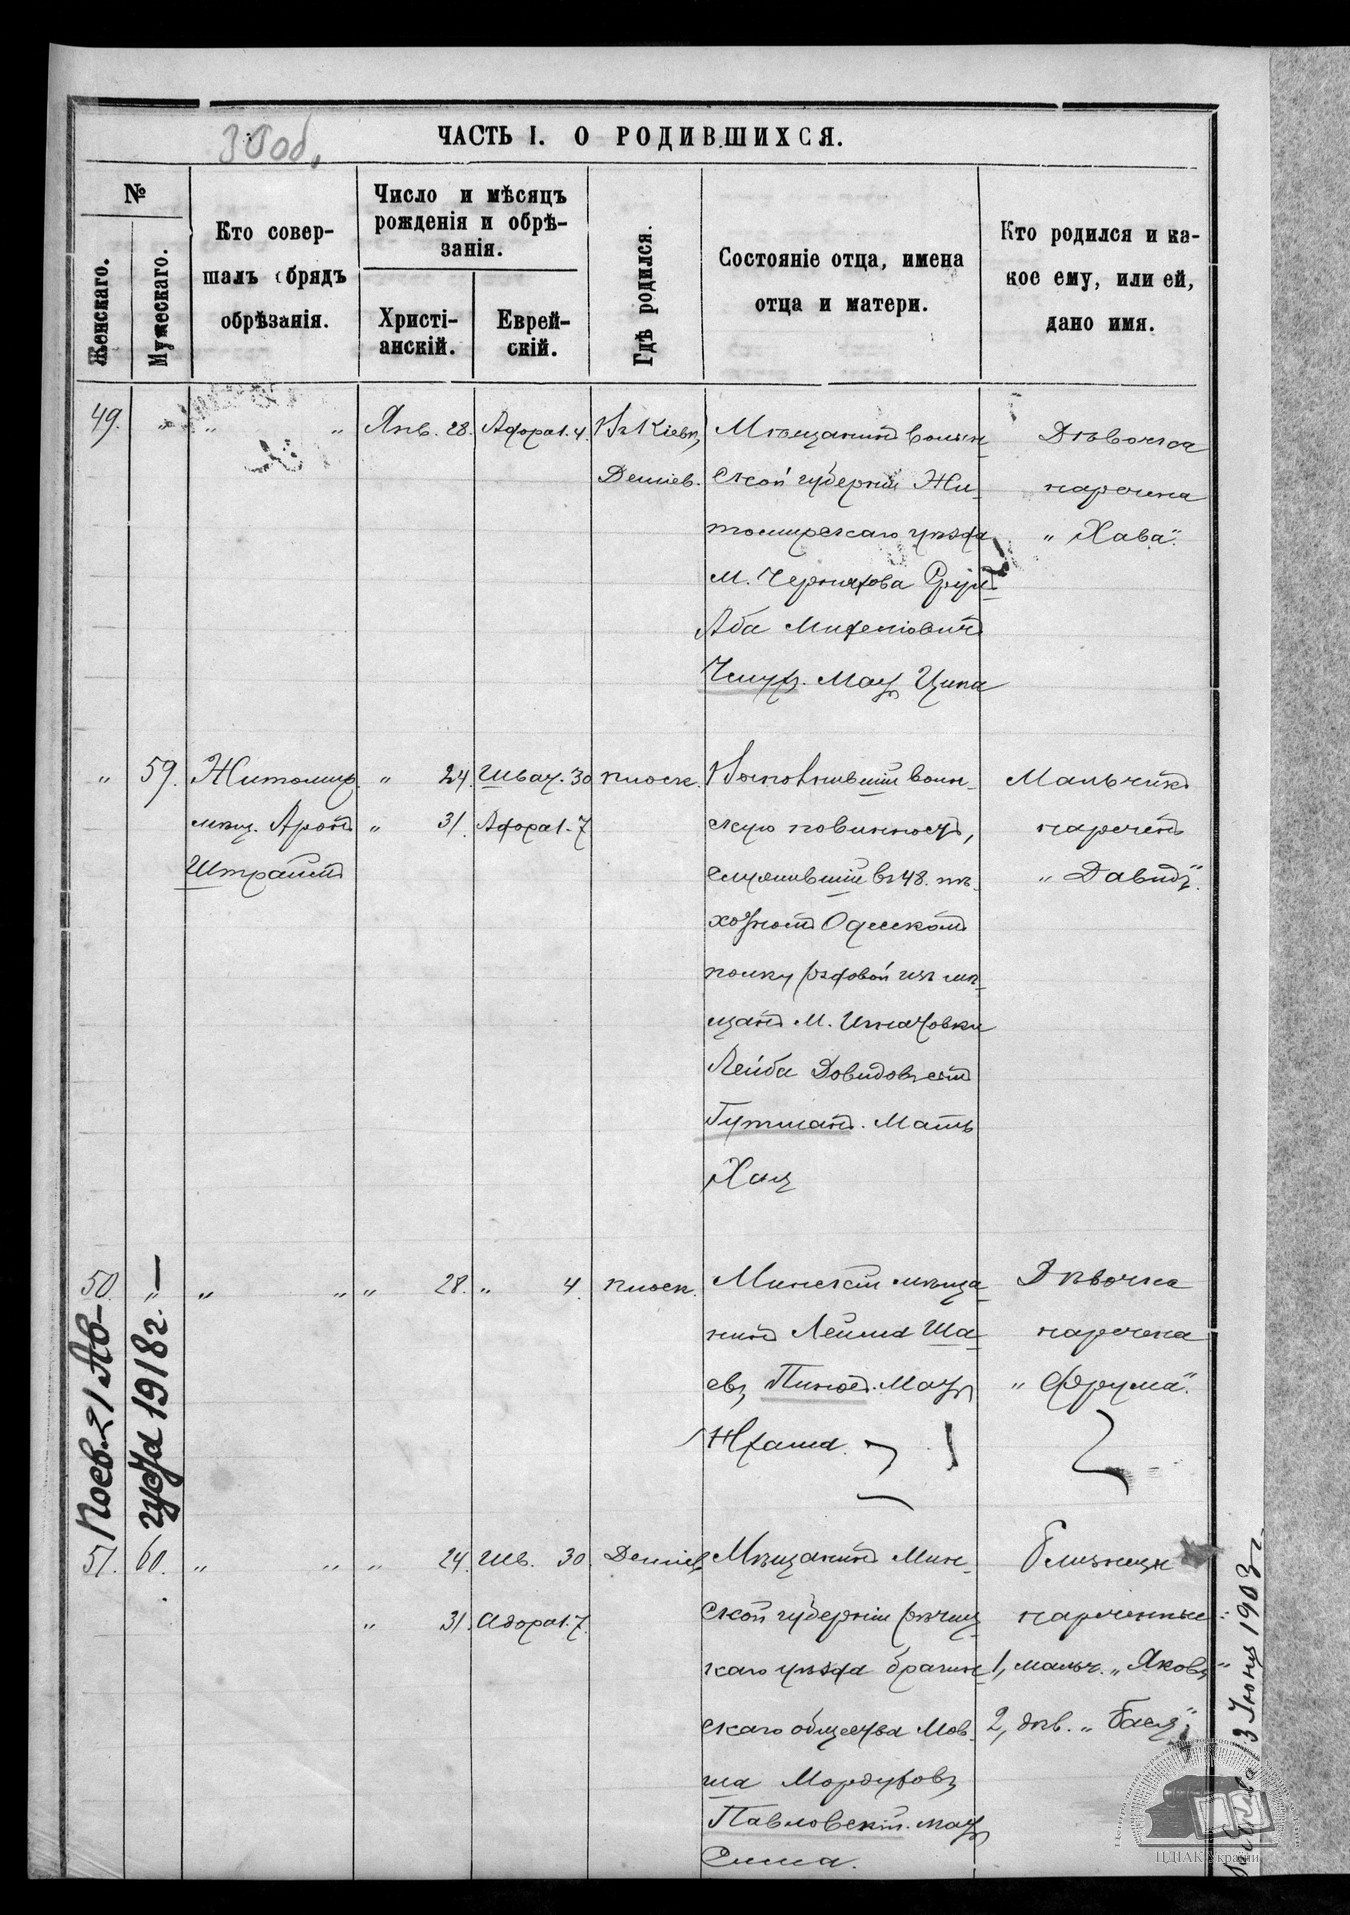 30 об.
ЧАСТЬ I. О РОДИВШИХСЯ.
№
Женскаго.
Мужескаго.
Кто совер-
шалъ обрядъ
обрѣзанія.
Число и мѣсяцъ
рожденія и обрѣ-
занія.
Христі-
анскій.
Еврей-
скій.
Гдѣ родился.
Состояніе отца, имена
отца и матери.
Кто родился и ка-
кое ему, или ей,
дано имя.
49. " " " Янв. 28. Адора 1. 4. Въ Кіевѣ,
Деміев.
Мѣщанинъ Волын-
ской губерніи Жи-
томирскаго уѣзда
м. Черняхова Сруль
Аба
Мать Ципа
Дѣвочка
наречена
"Хава".
" 59. Житомир.
мѣщ. Аронъ
Штраймъ
" 24. Швать. 30 Плоск.
" 31. Адора 1. 7
Выполнившій воин-
скую повинность,
служившій въ 48. пѣ-
хотномъ Одесскомъ
полку рядовой изъ мѣ-
щанъ м. Игнатовки
Лейба Довидовъ сынъ
Гутманъ. Мать
Хая
Мальчикъ
нареченъ
"Давидъ".
50. " " " " 28. " 4. Плоск.
Минскій мѣща-
нинъ Лейма Ша-
евъ Мать
Дѣвочка
наречена
"Фрума".
51. 60. " " " 24. Шв. 30. Деміев.
" 31. Адора 1. 7.
Мѣщанинъ Мин-
ской губерніи Рѣчиц-
каго уѣзда Брагин-
скаго общества Мов-
ша Мордуховъ
Павловскій. Мать
Сима.
Близнецы
нареченные:
1, мальч. "Яковъ"
2, дѣв. "Бася".
Повѣ. 21 Ав-
густа 1918 г.
13 Іюня 1903 г.
ЦДІАК України